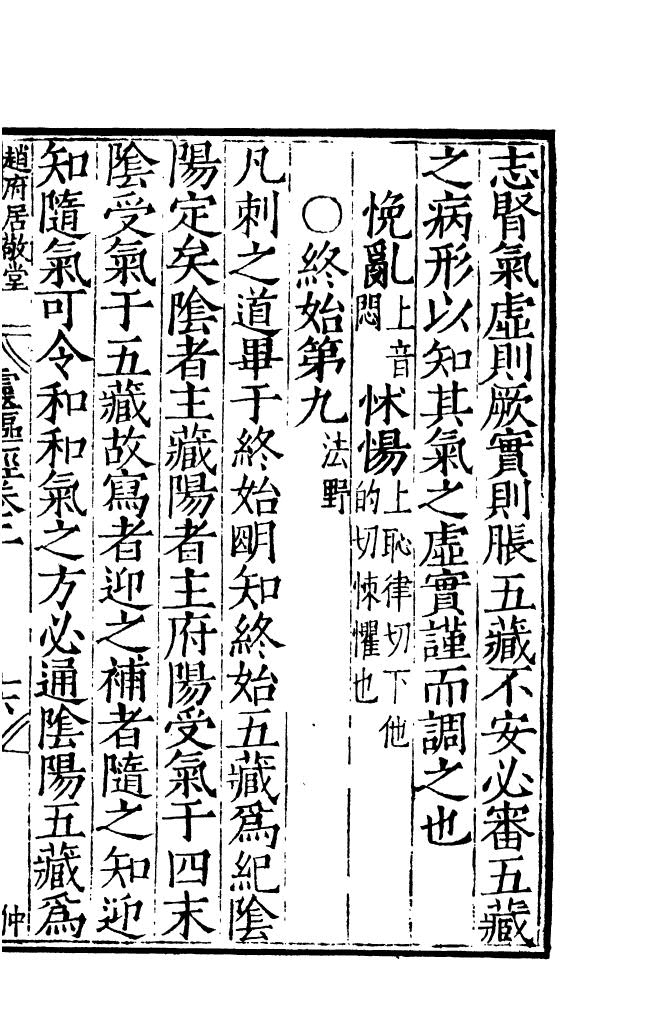 志腎氣虛則厥實則脹五藏不安必審五藏
之病形以知其氣之虛實謹而調之也
悗亂上音悶 怵惕上恥律切下他的切悚懼也
○終始第九法野
凡刺之道畢于終始明知終始五藏爲紀陰
陽定矣陰者主藏陽者主府陽受氣于四末
陰受氣于五藏故寫者迎之補者隨之知迎
知隨氣可令和和氣之方必通陰陽五藏爲
趙府居敬堂 靈樞經卷二 六 仲